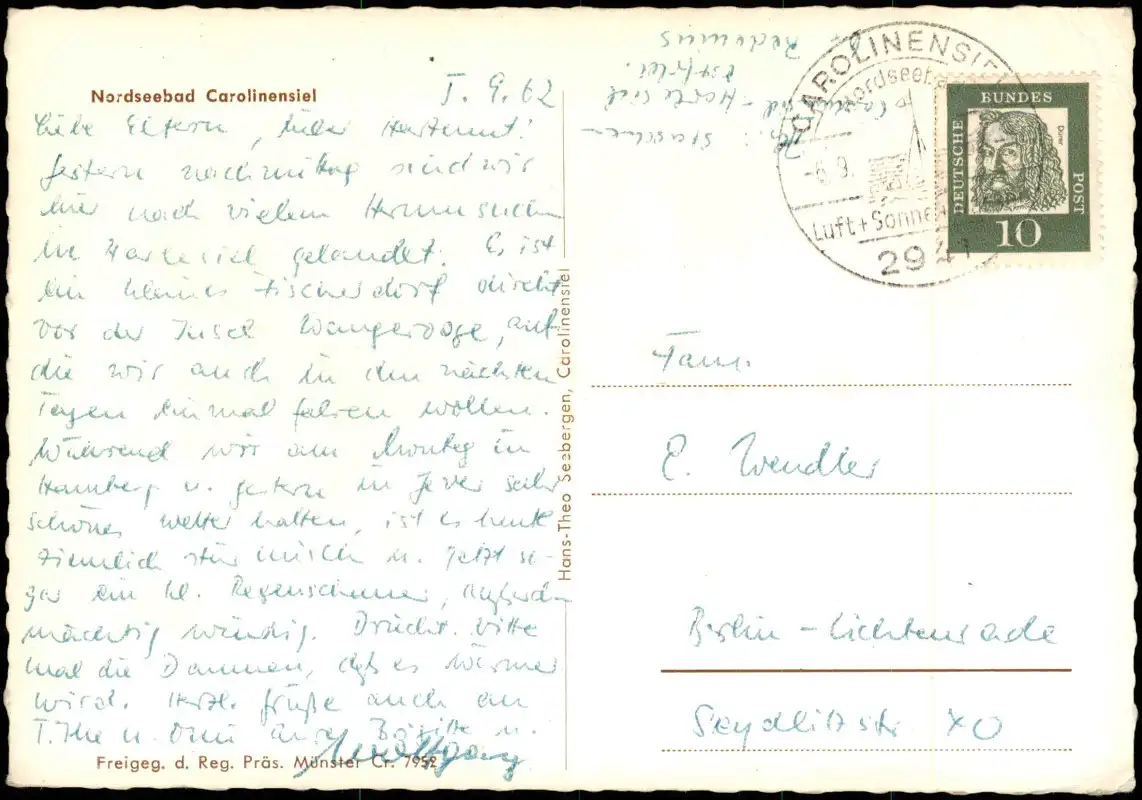 Nordseebad Carolinensiel
5.9.62
Liebe Eltern, lieber Hartmut!
gestern nachmittag sind wir
hier nach vielem Herumsuchen
in Harlesiel gelandet. Es ist
ein kleines Fischerdorf direkt
vor der Insel Wangerooge, auf
die wir auch in den nächsten
Tagen einmal fahren wollen.
Während wir am Montag in
Hamburg u. gestern in Jever sehr
schönes Wetter hatten, ist es heute
ziemlich stürmisch u. jetzt so-
gar ein kl. Regenschauer, außerdem
mächtig windig. Drückt bitte
mal die Daumen, daß es wärmer
wird. Herzl. Grüße auch an
T. Ilse u. Omi Eure Brigitte u.
Wolfgang
Freigeg. d. Reg. Präs. Münster Cr. 7952
Hans-Theo Seebergen, Carolinensiel
Carolinensiel-Harlesiel
Ostfrld.
Redenius
CAROLINENSIEL
Nordseeb
-6.9.
Luft + Sonne
2941
DEUTSCHE
BUNDES
POST
Dürer
10
Fam.
E. Wendler
Berlin - Lichtenrade
Seydlitzstr. 40